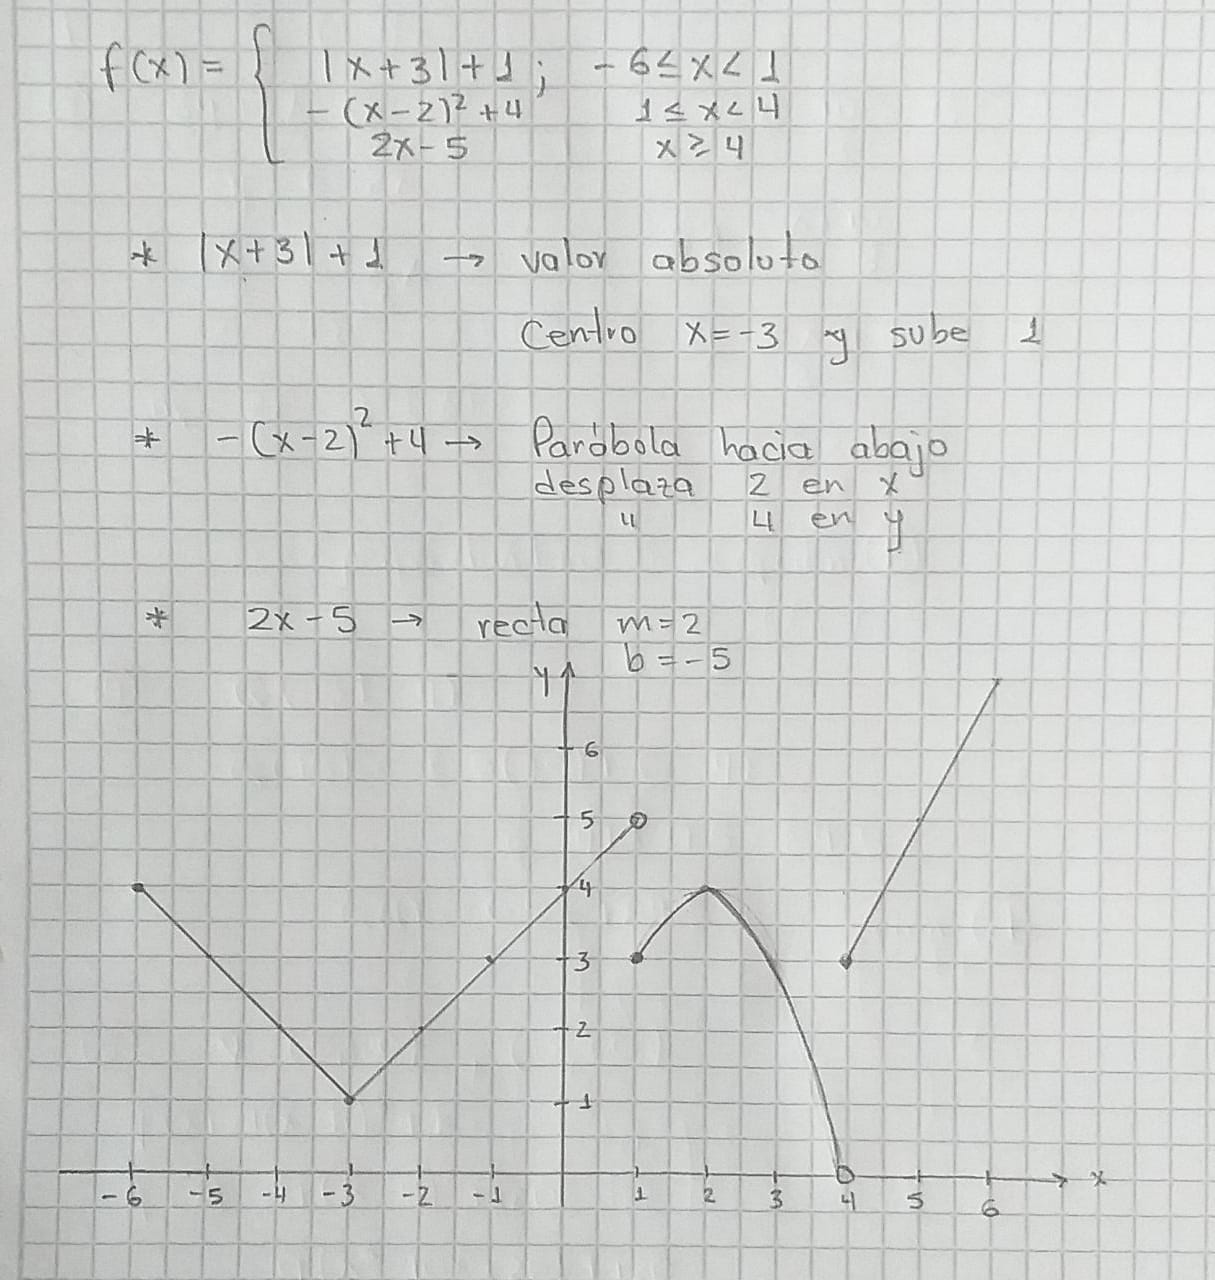 f(x) = { |x+3|+1 ; -6 ≤ x < 1
-(x-2)² + 4 1 ≤ x < 4
2x-5 x ≥ 4
* |x+3| + 1 → valor absoluto
Centro x=-3 y sube 1
* -(x-2)² + 4 → Parábola hacia abajo
desplaza 2 en x
" 4 en y
* 2x-5 → recta m=2
b=-5
y
6
5
4
3
2
1
-6 -5 -4 -3 -2 -1 1 2 3 4 5 6 x